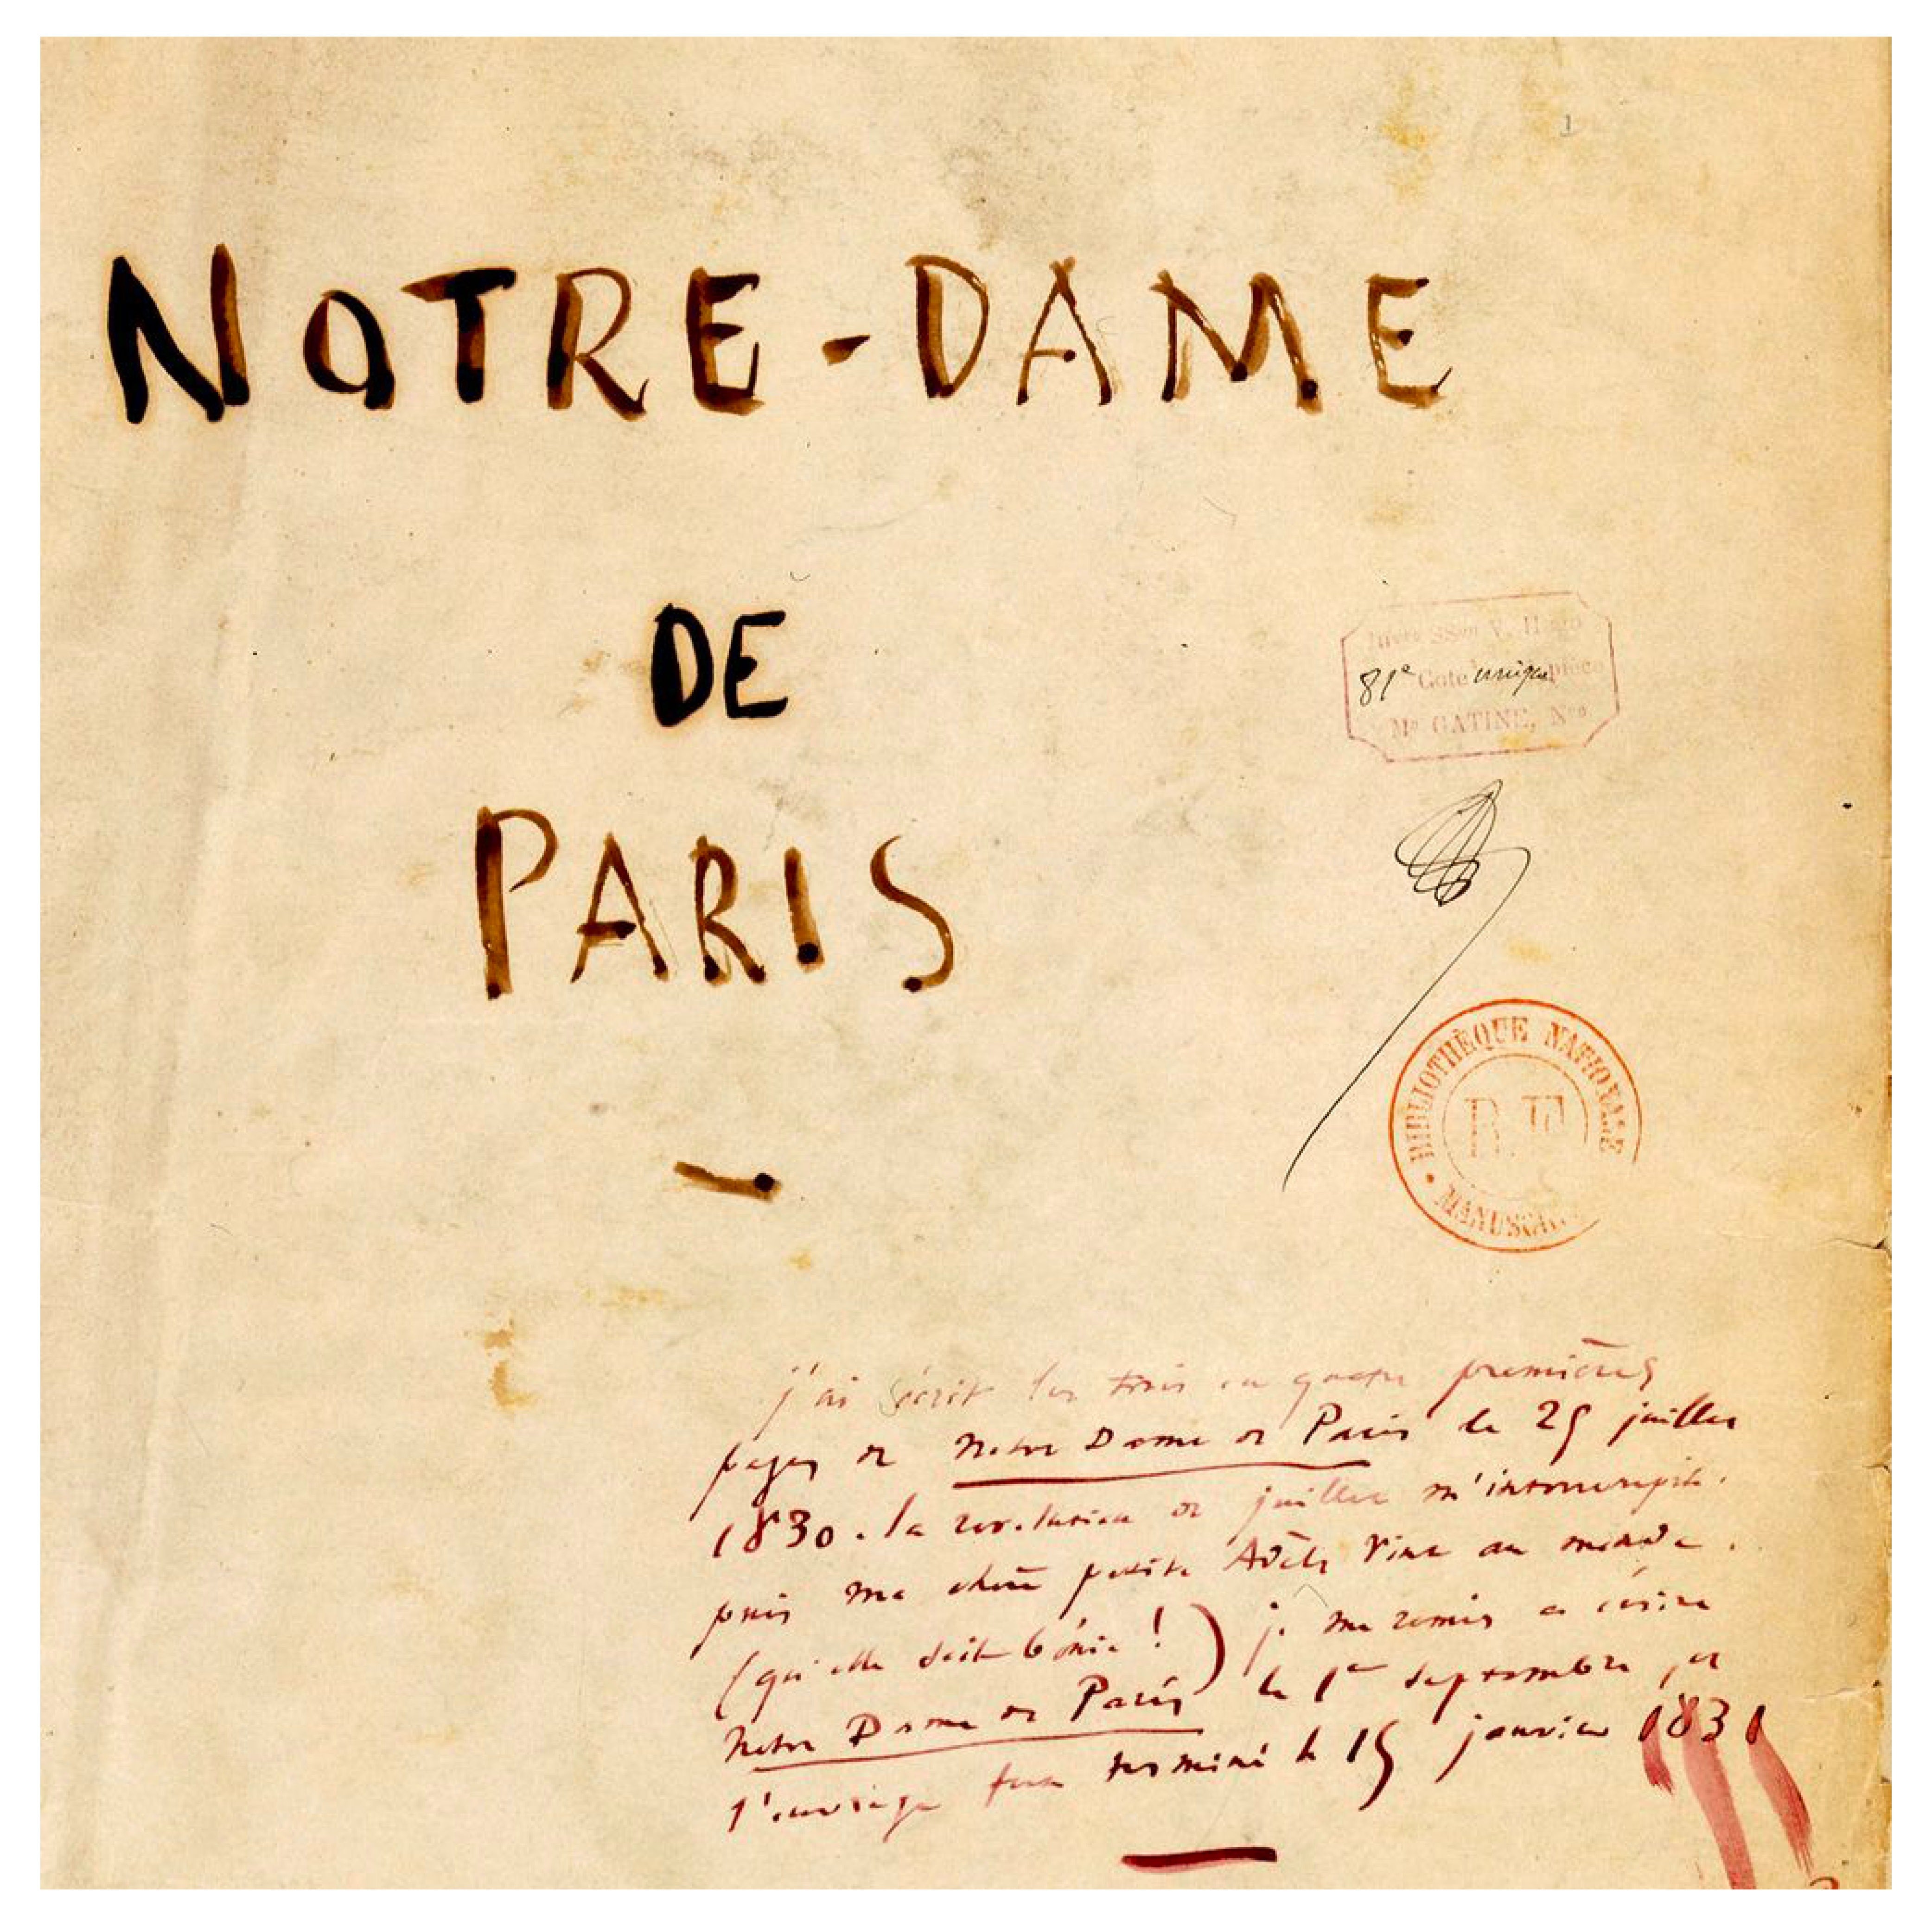 1
NOTRE-DAME
DE
PARIS
Succession V. Hugo
81e Cote unique pièce
Me GATINE, Nre
BIBLIOTHÈQUE NATIONALE
R.F.
MANUSCRITS
j'ai écrit les trois ou quatre premières
pages de Notre Dame de Paris le 25 juillet
1830. la révolution de juillet m'interrompit.
puis ma chère petite Adèle vint au monde.
(qu'elle soit bénie!) je me remis à écrire
Notre Dame de Paris le 1er septembre, et
l'ouvrage fut terminé le 15 janvier 1831